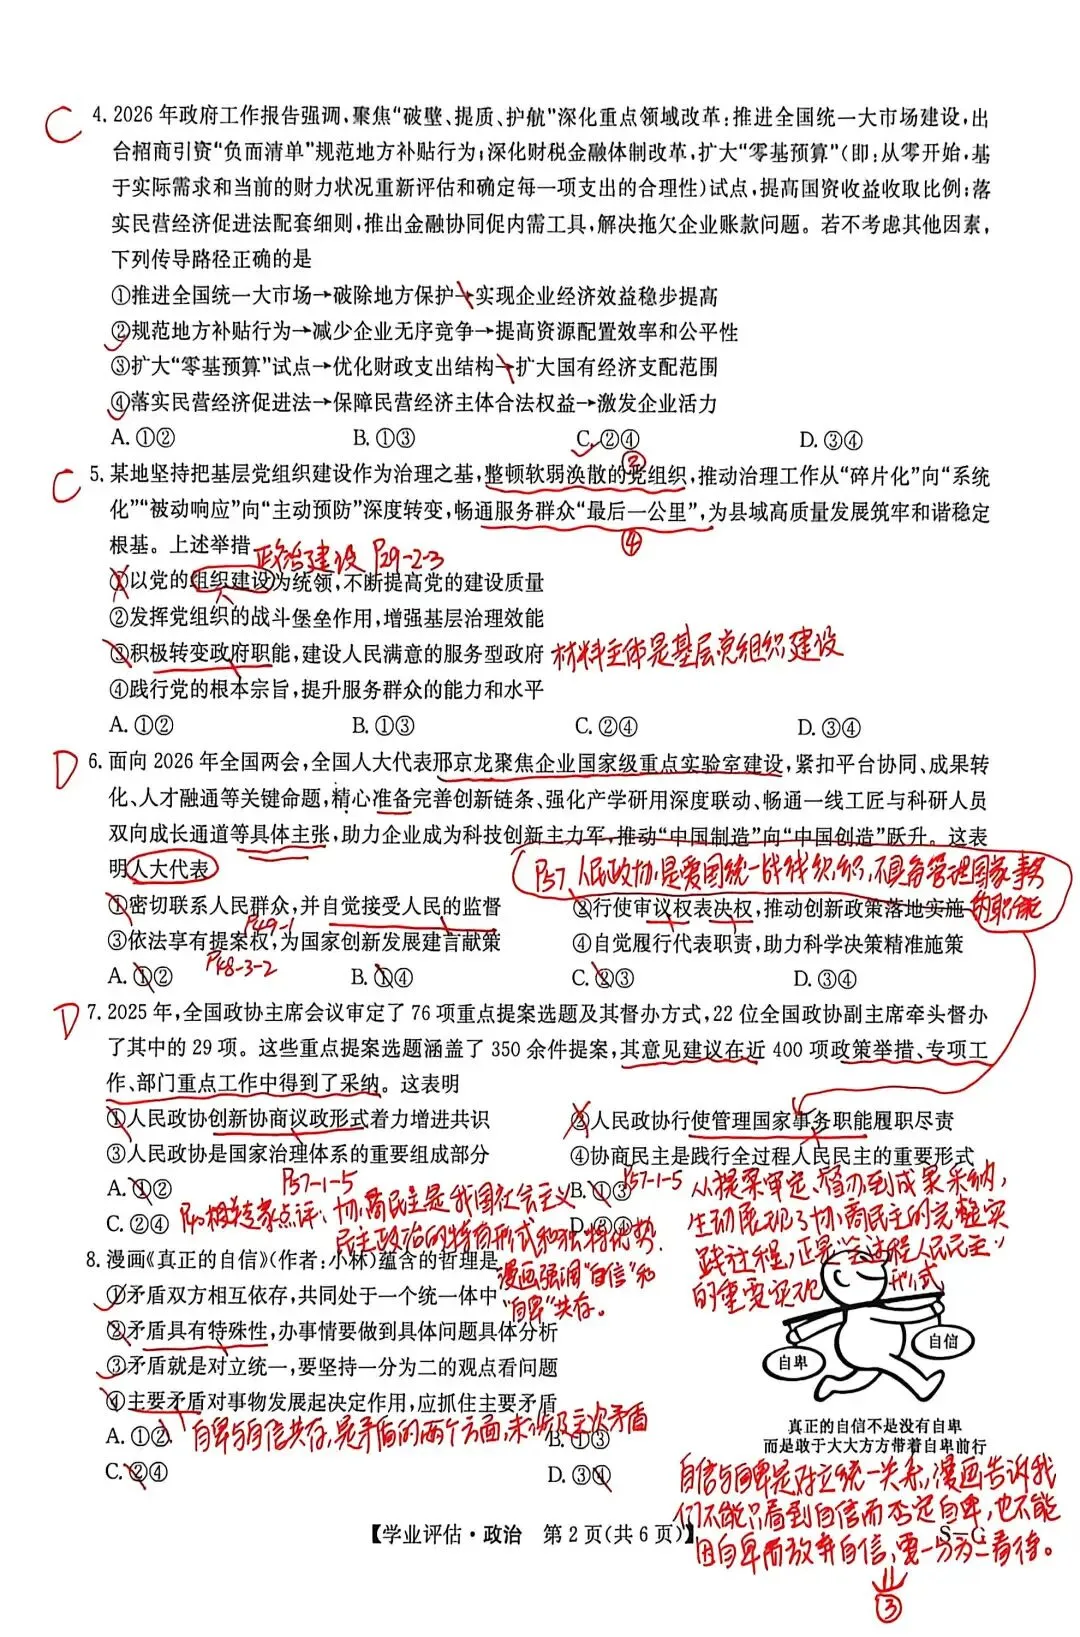 C
4. 2026 年政府工作报告强调,聚焦“破壁、提质、护航”深化重点领域改革:推进全国统一大市场建设,出
台招商引资“负面清单”规范地方补贴行为;深化财税金融体制改革,扩大“零基预算”(即:从零开始,基
于实际需求和当前的财力状况重新评估和确定每一项支出的合理性)试点,提高国资收益收取比例;落
实民营经济促进法配套细则,推出金融协同促内需工具,解决拖欠企业账款问题。若不考虑其他因素,
下列传导路径正确的是
①推进全国统一大市场→破除地方保护→实现企业经济效益稳步提高
②规范地方补贴行为→减少企业无序竞争→提高资源配置效率和公平性
③扩大“零基预算”试点→优化财政支出结构→扩大国有经济支配范围
④落实民营经济促进法→保障民营经济主体合法权益→激发企业活力
A. ①② B. ①③ C. ②④ D. ③④
C
5. 某地坚持把基层党组织建设作为治理之基,整顿软弱涣散的党组织,推动治理工作从“碎片化”向“系统
化”“被动响应”向“主动预防”深度转变,畅通服务群众“最后一公里”,为县域高质量发展筑牢和谐稳定
④
根基。上述举措
政治建设 P29-2-3
①以党的组织建设为统领,不断提高党的建设质量
②发挥党组织的战斗堡垒作用,增强基层治理效能
③积极转变政府职能,建设人民满意的服务型政府
材料主体是基层党组织建设
④践行党的根本宗旨,提升服务群众的能力和水平
A. ①② B. ①③ C. ②④ D. ③④
D
6. 面向 2026 年全国两会,全国人大代表邢京龙聚焦企业国家级重点实验室建设,紧扣平台协同、成果转
化、人才融通等关键命题,精心准备完善创新链条、强化产学研用深度联动、畅通一线工匠与科研人员
双向成长通道等具体主张,助力企业成为科技创新主力军,推动“中国制造”向“中国创造”跃升。这表
明人大代表
P57 人民政协是爱国统一战线组织,不具备管理国家事务
的职能
①密切联系人民群众,并自觉接受人民的监督 ②行使审议权表决权,推动创新政策落地实施
P49-1
③依法享有提案权,为国家创新发展建言献策 ④自觉履行代表职责,助力科学决策精准施策
P48-3-2
A. ①② B. ①④ C. ②③ D. ③④
D
7. 2025 年,全国政协主席会议审定了 76 项重点提案选题及其督办方式,22 位全国政协副主席牵头督办
了其中的 29 项。这些重点提案选题涵盖了 350 余件提案,其意见建议在近 400 项政策举措、专项工
作、部门重点工作中得到了采纳。这表明
①人民政协创新协商议政形式着力增进共识 ②人民政协行使管理国家事务职能履职尽责
③人民政协是国家治理体系的重要组成部分 ④协商民主是践行全过程人民民主的重要形式
P57-1-5
P57-1-5
A. ①② B. ①③
C. ②④ D. ③④
P40相关专家点评、协商民主是我国社会主义
民主政治的特有形式和独特优势.
从提案审定、督办到成果采纳,
生动展现了协商民主的完整实
践过程,正是全过程人民民主
的重要实现形式
8. 漫画《真正的自信》(作者:小林)蕴含的哲理是
漫画强调“自信”和
“自卑”共存。
①矛盾双方相互依存,共同处于一个统一体中
②矛盾具有特殊性,办事情要做到具体问题具体分析
③矛盾就是对立统一,要坚持一分为二的观点看问题
④主要矛盾对事物发展起决定作用,应抓住主要矛盾
自卑与自信共存,是矛盾的两个方面,未涉及主次矛盾
A. ①② B. ①③
C. ②④ D. ③④
自卑
自信
真正的自信不是没有自卑
而是敢于大大方方带着自卑前行
自信与自卑是对立统一关系,漫画告诉我
们不能只看到自信而否定自卑,也不能
因自卑而放弃自信,要一分为二看待。
③
【学业评估·政治 第 2 页(共 6 页)】 S-G